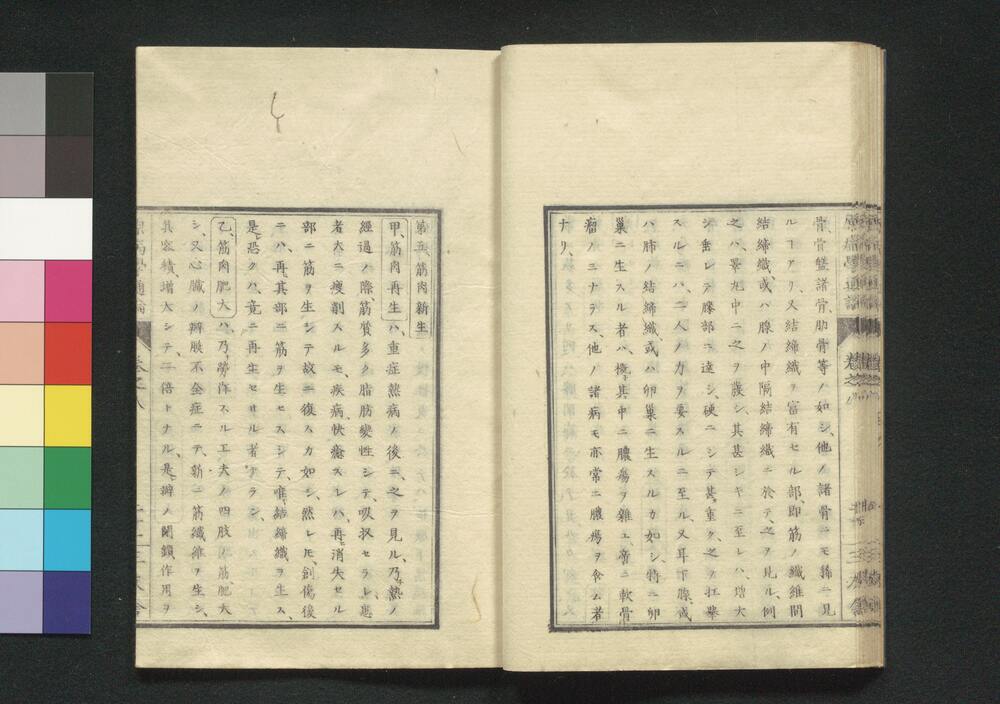 骨、骨盤諸骨、肋骨等ノ如シ、他ノ諸骨ニモ稀ニ見
ルヿアリ、又結締織ヲ富有セル部、即筋ノ纖維間
結締織、或ハ腺ノ中隔結締織ニ於テ、之ヲ見ル、例
之ハ、睾丸中ニ之ヲ譏シ、其甚シキニ至レハ、増大
シ垂レテ膝部ニ達シ、硬ニシテ甚重ク、之ヲ扛擧
スルニハ、二人ノ力ヲ要スルニ至ル、又耳下腺、或
ハ肺ノ結締織、或ハ卵巣ニ生スルカ如シ、特ニ卵
巣ニ生スル者ハ、其中ニ膿瘍ヲ雜ユ、啻ニ軟骨
瘤ノミナラス、他ノ諸病モ亦常ニ膿瘍ヲ含ム者
ナリ、
第五、筋肉新生
甲、筋肉再生ハ、重症熱病ノ後ニ、之ヲ見ル、乃熱ノ
經過ノ際、筋質多ク脂肪變性シテ、吸収セラレ、患
者大ニ痩削スルモ、疾病快癒スレハ、再消失セル
部ニ筋ヲ生シテ故ニ復スルカ如シ、然レ𪜈、創傷後
ニハ、再其部ニ筋ヲ生セスシテ、唯結締織ヲ生ス、
是恐クハ、竟ニ再生セサル者ナラン、
乙、筋肉肥大ハ、乃勞作スル工夫ノ四肢筋肥大
シ、又心臓ノ瓣膜不全症ニテ、新ニ筋纖維ヲ生シ、
其容積増大シテ、二倍トナル、是瓣ノ閉鎖作用ヲ